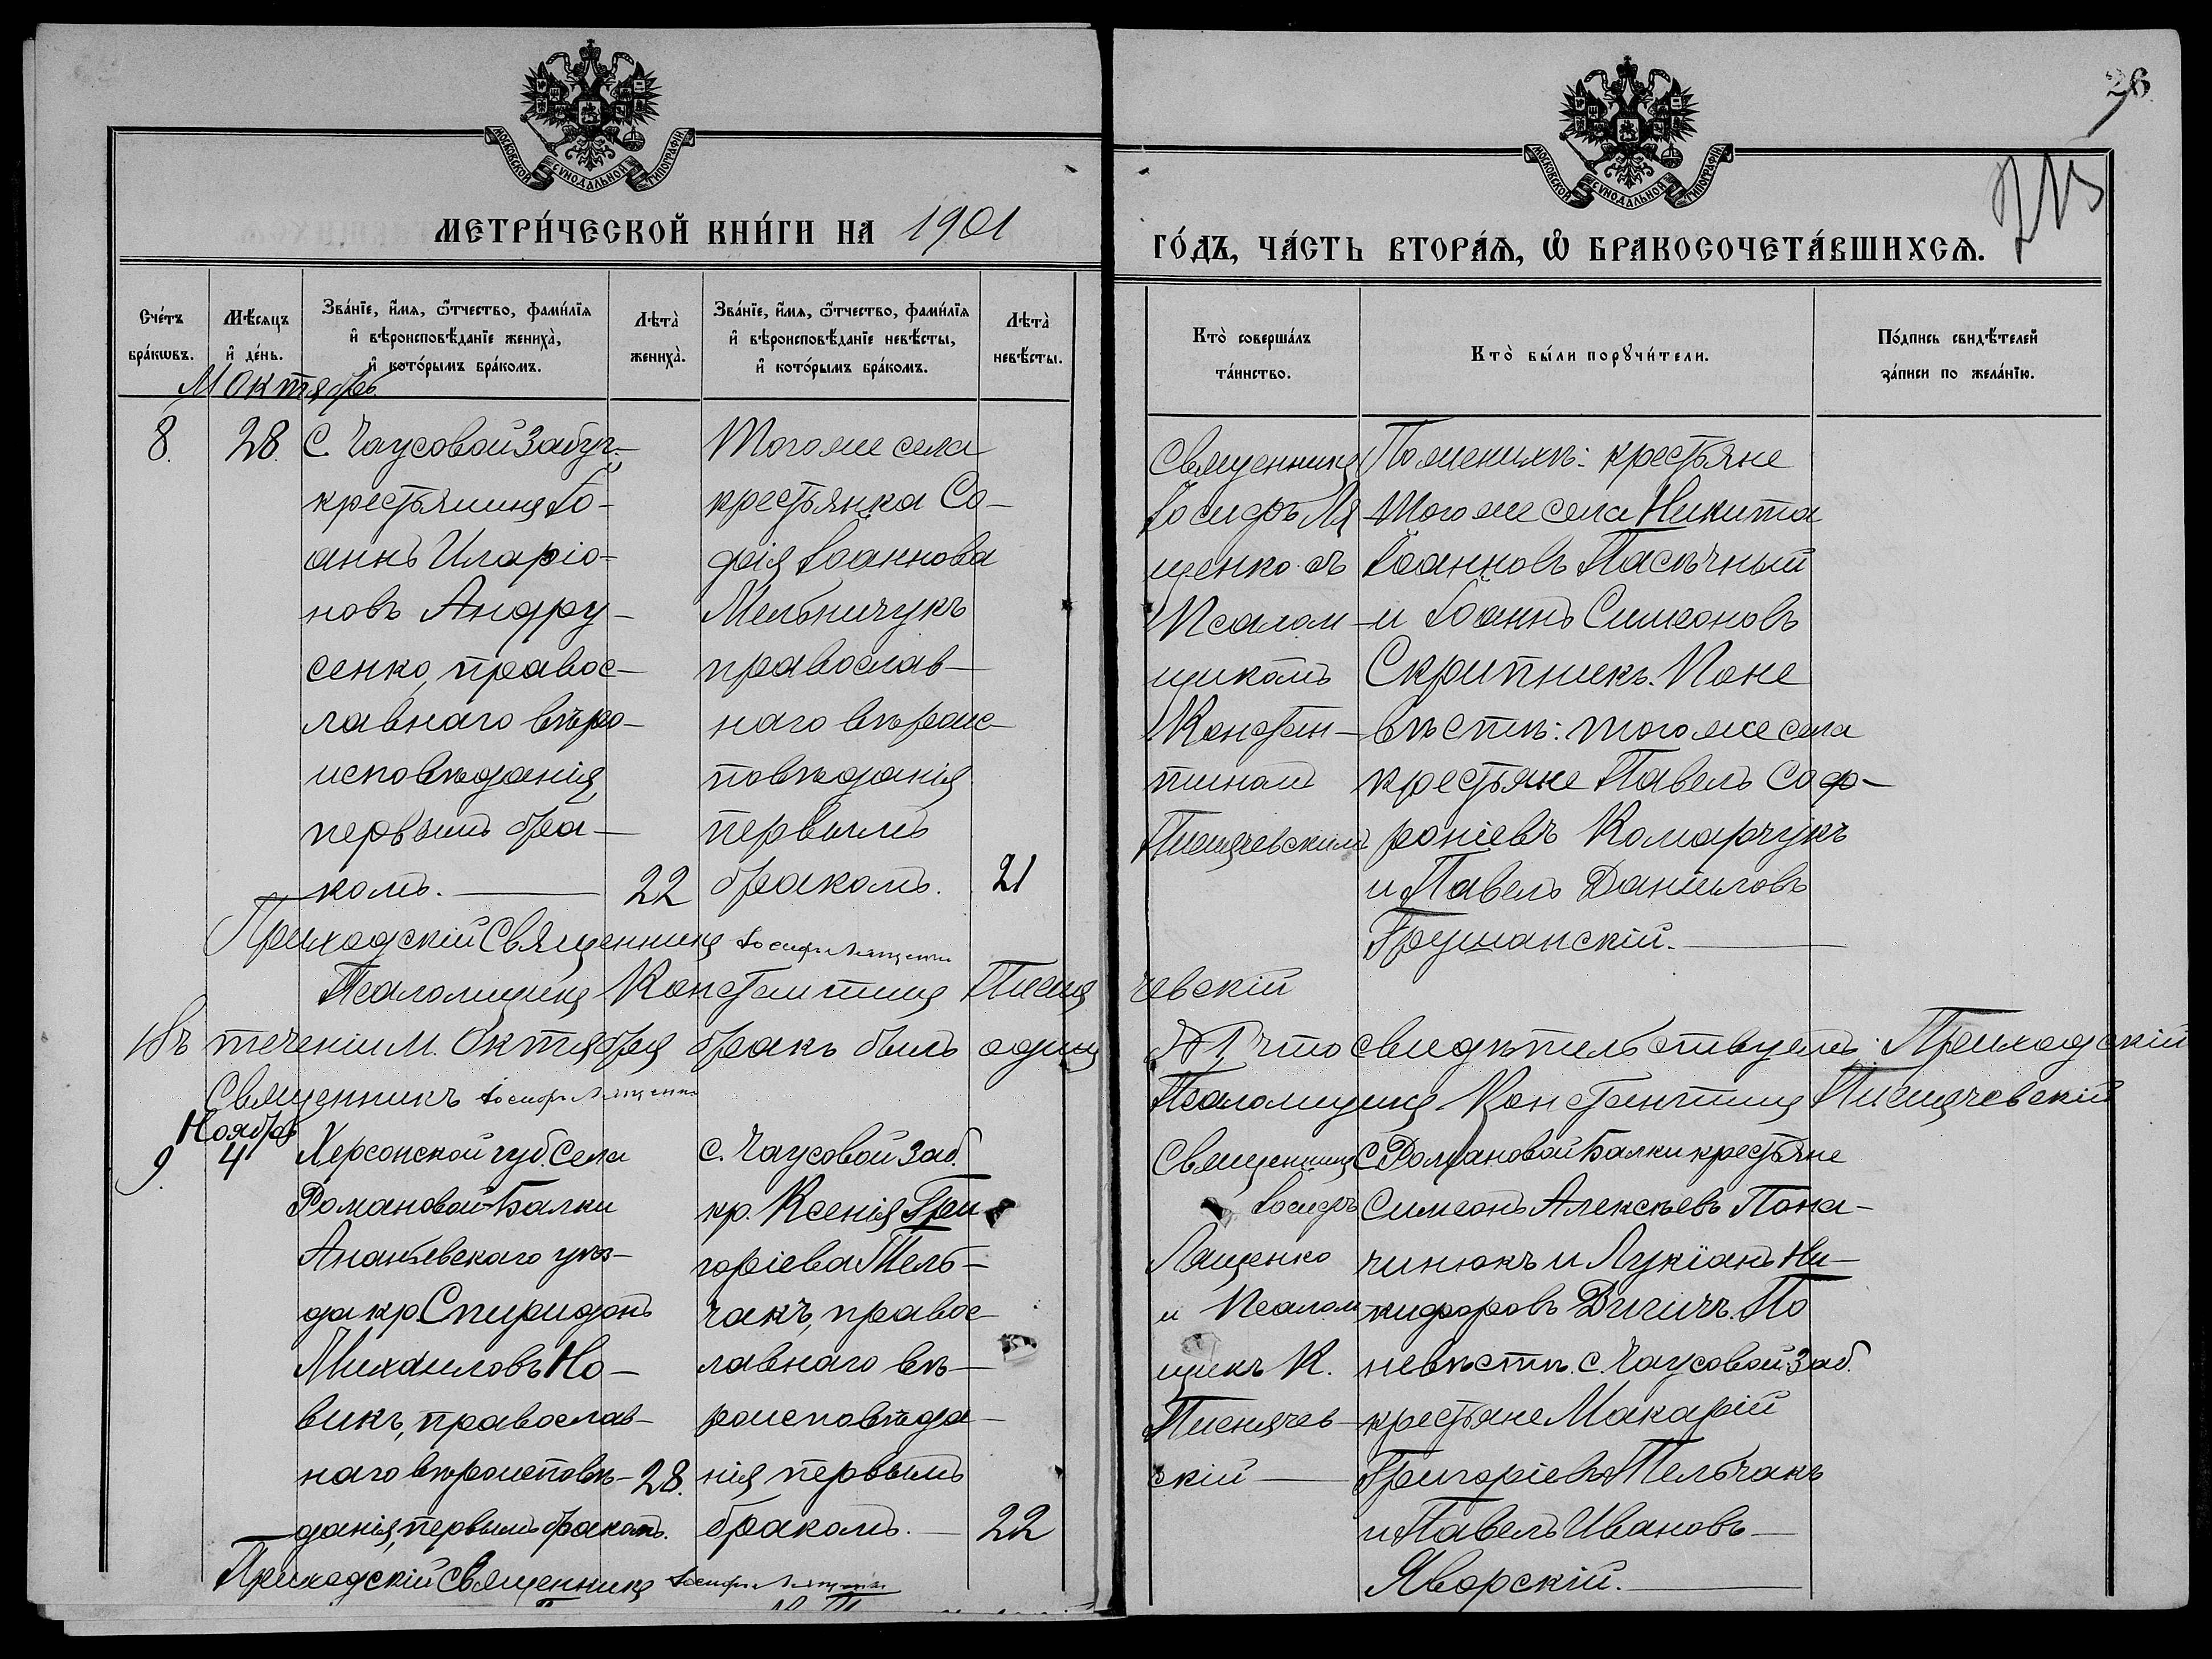 26
МОСКОВСКОЙ СУНОДАЛЬНОЙ ТИПОГРАФІИ
МОСКОВСКОЙ СУНОДАЛЬНОЙ ТИПОГРАФІИ
МЕТРИ́ЧЕСКОЙ КНИ́ГИ НА 1901
ГО́ДЪ, ЧА́СТЬ ВТОРА́Ѧ, Ѽ БРАКОСОЧЕТА́ВШИХСѦ.
Сче́тъ
бра́кѡвъ.
Мѣ́сяцъ
и҆ де́нь.
Зва́нїе, и҆́мѧ, ѻ҆́тчество, фами́лїѧ
и҆ вѣроисповѣ́данїе жениха̀,
и҆ кото́рымъ бра́комъ.
Лѣта̀
жениха̀.
Зва́нїе, и҆́мѧ, ѻ҆́тчество, фами́лїѧ
и҆ вѣроисповѣ́данїе невѣ́сты,
и҆ кото́рымъ бра́комъ.
Лѣта̀
невѣ́сты.
Кто̀ соверша́лъ
та́инство.
Кто̀ бы́ли порꙋчи́тели.
По́дпись свидѣ́телей
за́писи по жела́нїю.
М Октябрь
8.
28.
С. Чаусовой Забуг.
крестьянинъ Іо-
аннъ Иларіо-
новъ Андру-
сенко, правос-
лавнаго вѣро-
исповѣданія,
первымъ бра-
комъ.
22
Того же села
крестьянка Со-
фія Іоаннова
Мельничукъ
православ-
наго вѣроис-
повѣданія
первымъ
бракомъ.
21
Священникъ
Іосифъ Ля
щенко съ
Псалом-
щикомъ
Констан-
тиномъ
Писнячевскимъ
По женихѣ: крестьяне
того же села Никита
Іоанновъ Пасѣчный
и Іоаннъ Симеоновъ
Скрипникъ. По не
вѣстѣ: того же села
крестьяне Павелъ Соф-
роніевъ Комарчукъ
и Павелъ Даниловъ
Грушанскій.
Приходскій Священникъ Іосифъ Лященко
Псаломщикъ Константинъ Писня чевскій
Въ теченіи М. Октября бракъ былъ одинъ № 1, что свидѣтельствуемъ: Приходскій
Священникъ Іосифъ Лященко Псаломщикъ Константинъ Писнячевскій
Ноябрь
9.
4
Херсонской губ. села
Романовой-Балки
Ананьевскаго уѣз-
да кр. Спиридонъ
Михаиловъ Но-
викъ, православ-
наго вѣроисповѣ-
данія, первымъ бракомъ.
28.
с. Чаусовой Заб.
кр. Ксенія Гри
горіева Тель-
чакъ, правос-
лавнаго вѣ-
роисповѣда-
нія первымъ
бракомъ.
22
Священникъ
Іосифъ
Лященко
и Псалом
щикъ К.
Писнячев-
скій
С. Романовой Балки крестьяне
Симеонъ Алексѣевъ Пона-
чинюкъ и Лукіанъ Ни-
кифоровъ Дигичъ. По
невѣстѣ: с. Чаусовой Заб.
крестьяне Макарій
Григоріевъ Тельчакъ
и Павелъ Ивановъ
Яворскій.
Приходскій Священникъ Іосифъ Лященко